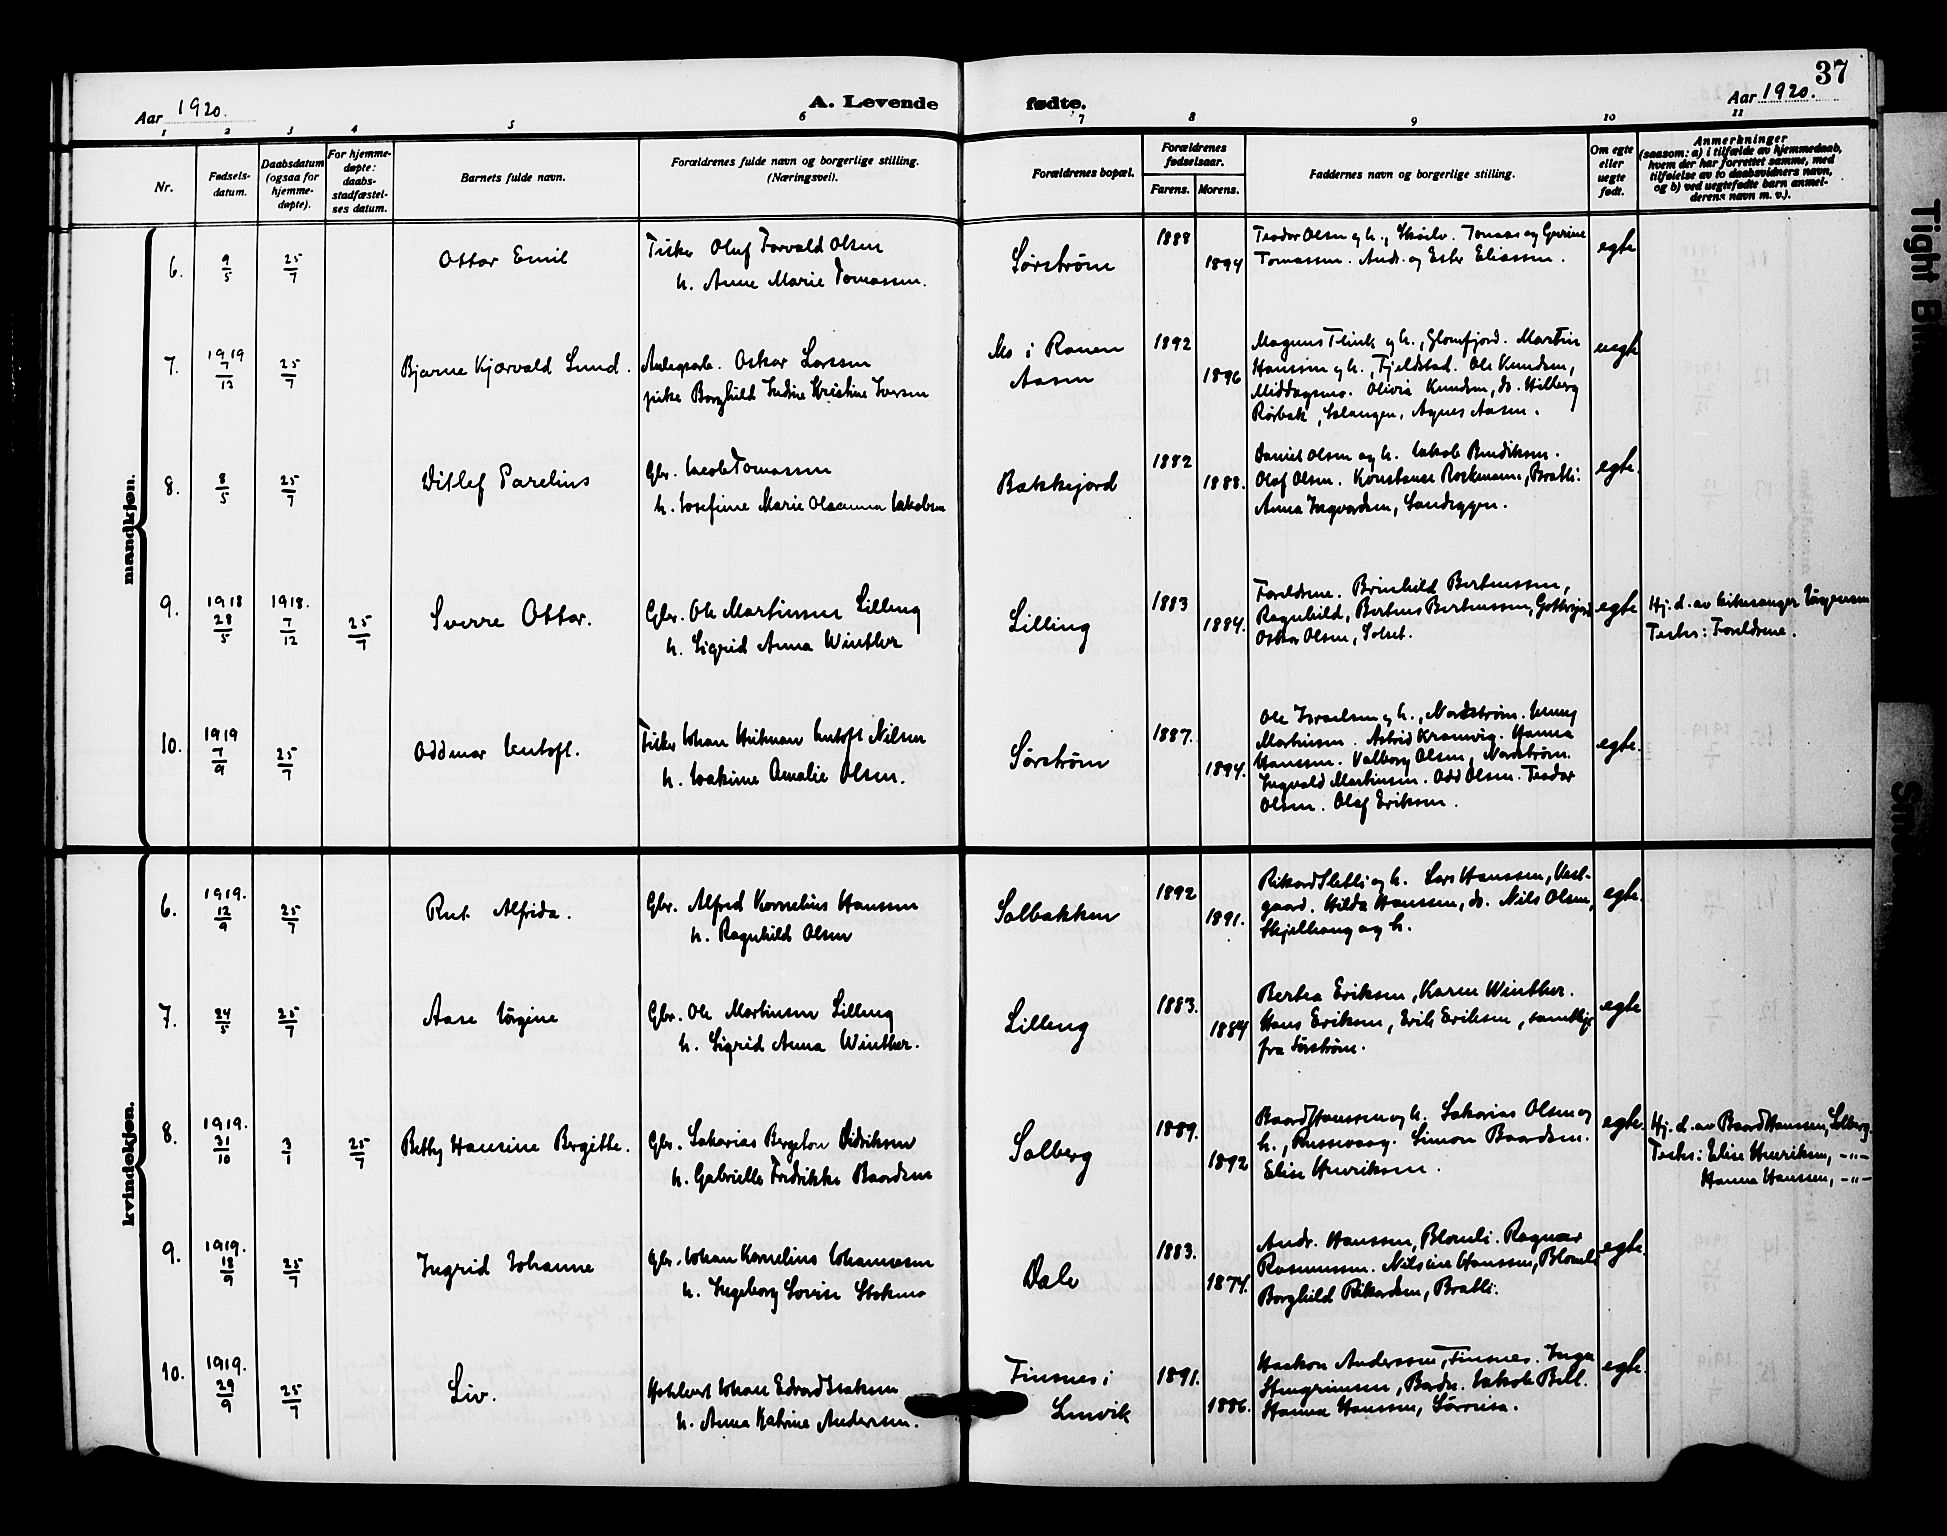 37
Aar 1920.
A. Levende fødte.
Aar 1920.
1 2 3 4 5 6 7 8 9 10 11
Nr.
Fødsels-
datum.
Daabsdatum
(ogsaa for
hjemme-
døpte).
For hjemme-
døpte:
daabs-
stadfæstel-
ses datum.
Barnets fulde navn.
Forældrenes fulde navn og borgerlige stilling.
(Næringsvei).
Forældrenes bopæl.
Forældrenes
fødselsaar.
Farens. Morens.
Faddernes navn og borgerlige stilling.
Om egte
eller
uegte
født.
Anmerkninger
(saasom: a) i tilfælde av hjemmedaab,
hvem der har forrettet samme, med
tilføielse av to daabsvidners navn,
og b) ved uegtefødte barn anmel-
derens navn m. v.).
mandkjøn.
6.
9/5
25/7
Ottar Emil
Fisker Oluf Torvald Olsen
h. Anne Marie Tomassen.
Sørstrøm
1888
1894
Teodor Olsen og h., Tomas og
Tomassen. Andr. og Ester Eliassen.
egte
7.
1919
7/12
25/7
Bjarne Kjærvald Lund.
Oskar Larssen
pike Borghild Indine Kristine Iversen
Mo i Ranen
Aasen
1892
1896
Magnus og h., Glomfjord. Martin
Hanssen og h., Fjeldstad. Ole Knudsen,
Middagsmo. Olivia Knudsen, do.
Rørbak, Salangen, Agnes Aasen.
uegte
8.
8/5
25/7
Ditlef Parelius
Gbr. Jacob Tomassen
h. Josefine Marie Jakobsen
Bakkejord
1882
1888.
Daniel Olsen og h. Jakob Bendiksen.
Olaf Olsen. Konstanse Bratli.
Anna Ingvardsen, Sandeggen.
egte.
9.
1918
28/5
1918.
7/12
25/7
Sverre Ottar.
Gbr. Ole Martinsen Lilleng
h. Sigrid Anna Winther
Lilleng
1883
1884.
Foreldrene. Brinhild Berteussen,
Ragnhild, Berteus Berteussen,
Oskar Olsen, Solset.
egte
Hj. d. av kirkesanger Jørgensen
Testes: Foreldrene.
10.
1919
7/9
25/7
Oddmar Jentoft.
Fisker Johan Jentoft Nilsen
h. Joakime Amalie Olsen.
Sørstrøm
1887.
1894.
Ole Israelsen og h., Nordstrøm. Jenny
Martinsen. Astrid Kramvig. Hanna
Hanssen. Valborg Olsen, Nordstrøm.
Ingvald Martinsen. Odd Olsen. Teodor
Olsen. Olaf Eriksen.
egte.
kvindekjøn.
6.
1919.
12/9
25/7
Rut Alfrida.
Gbr. Alfred Kornelius Hanssen
h. Ragnhild Olsen
Solbakken
1892
1891.
Rikard Sletli og h. Lars Hanssen, Vest-
gaard. Hilda Hanssen, do. Nils Olsen,
og h.
egte.
7.
24/5
25/7
Aase Jørgine
Gbr. Ole Martinsen Lilleng
h. Sigrid Anna Winther.
Lilleng
1883.
1884
Bertea Eriksen, Karen Winther.
Hans Eriksen, Erik Eriksen, samtlige
fra Sørstrøm.
egte
8.
1919.
31/10
3/1
25/7
Betty Hansine Bergitte.
Gbr. Sakarias Bergeton Didriksen
h. Gabrielle Fredrikke Baardsen
Solberg
1889.
1892
Baard Hanssen og h. Sakarias Olsen og
h., Russevaag. Simon Baardsen.
Elise Henriksen.
egte.
Hj. d. av Baard Hanssen, Solberg.
Testes: Elise Henriksen, -"-
Hanna Hanssen, -"-
9.
1919.
18/9
25/7
Ingrid Johanne
Gbr. Johan Kornelius Johannesen
h. Ingeborg Lovise Stokmo
Dale
1883.
1874.
Andr. Hanssen, Blomli. Ragnar
Rasmussen. Nilsine Hanssen, Blomli
Borghild Rikardsen, Bratli.
egte.
10.
1919.
29/9
25/7
Liv.
Johan Edvard Isaksen
h. Anna Katrine Andersen.
Finsnes i
Lenvik
1891.
1886.
Haakon Anderssen, Finsnes. Inga
Steingrimsen, Bodø. Jakob
Hanna Hanssen, Sørreisa.
egte.
Tight Bi